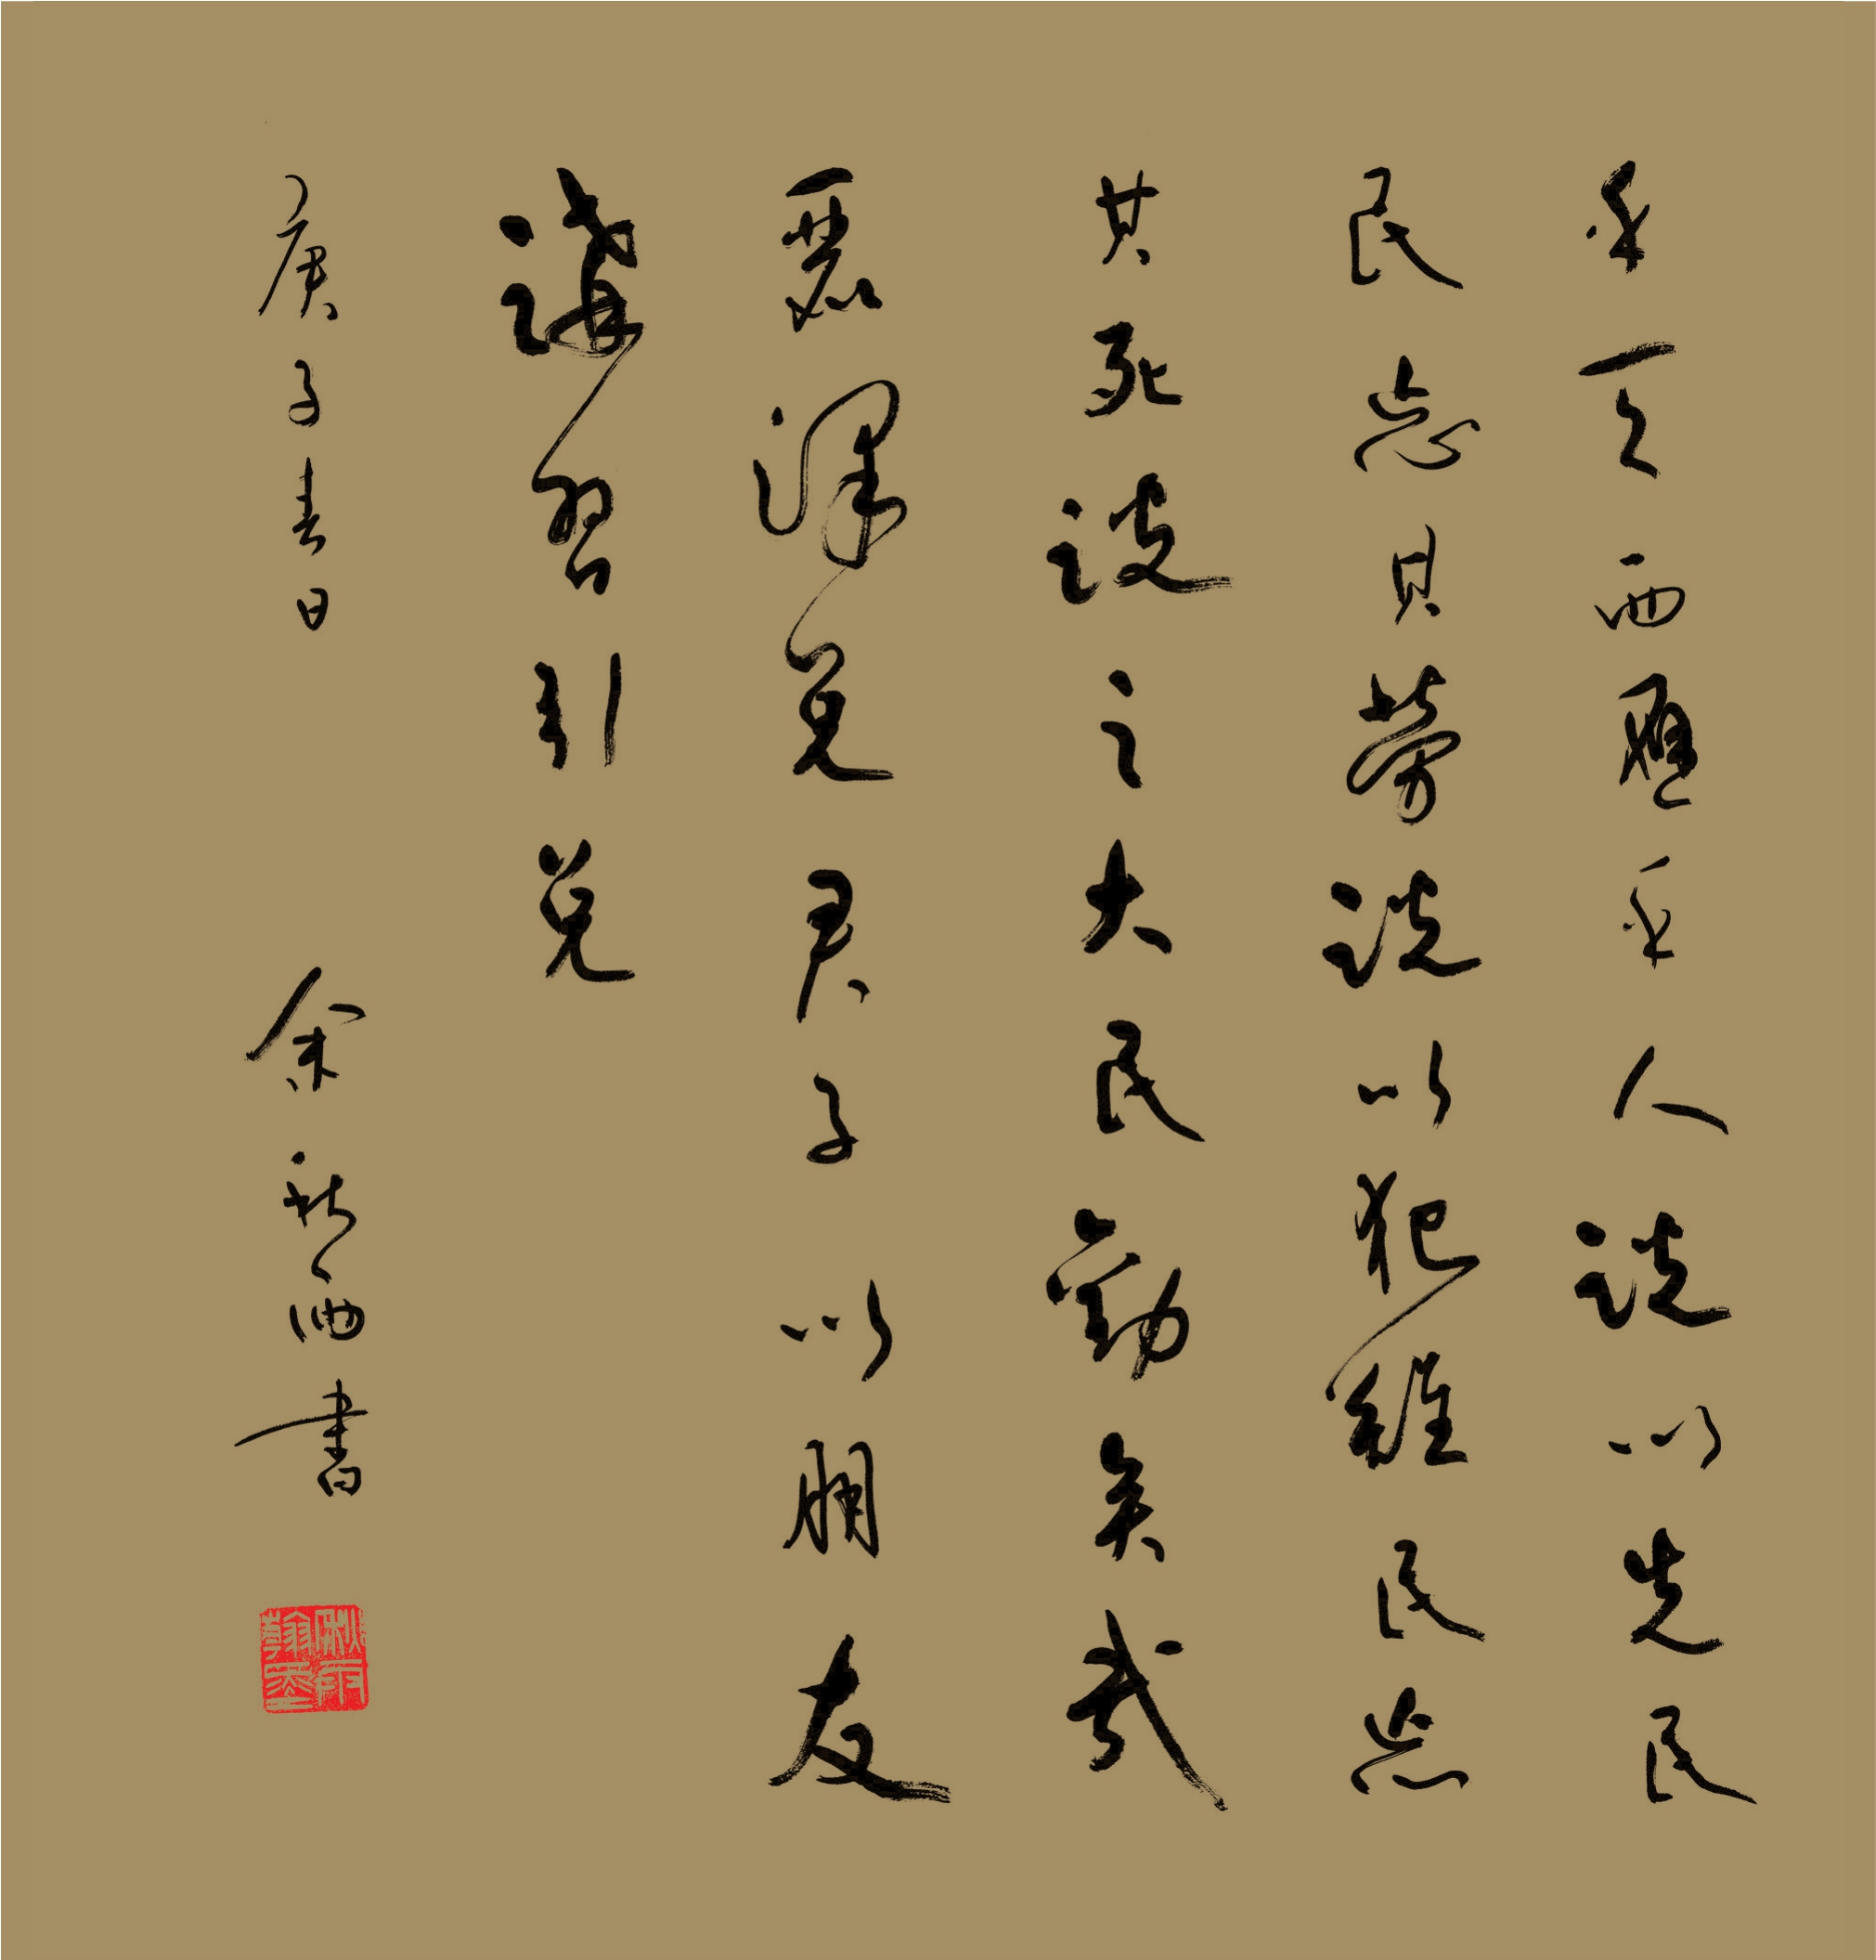 乎天而應乎人說以先民
民忘其勞說以犯難民忘
其死說之大民勸矣哉
麗澤兌君子以朋友
講習引兌
庚子春日 余秋雨書
秋雨翰墨